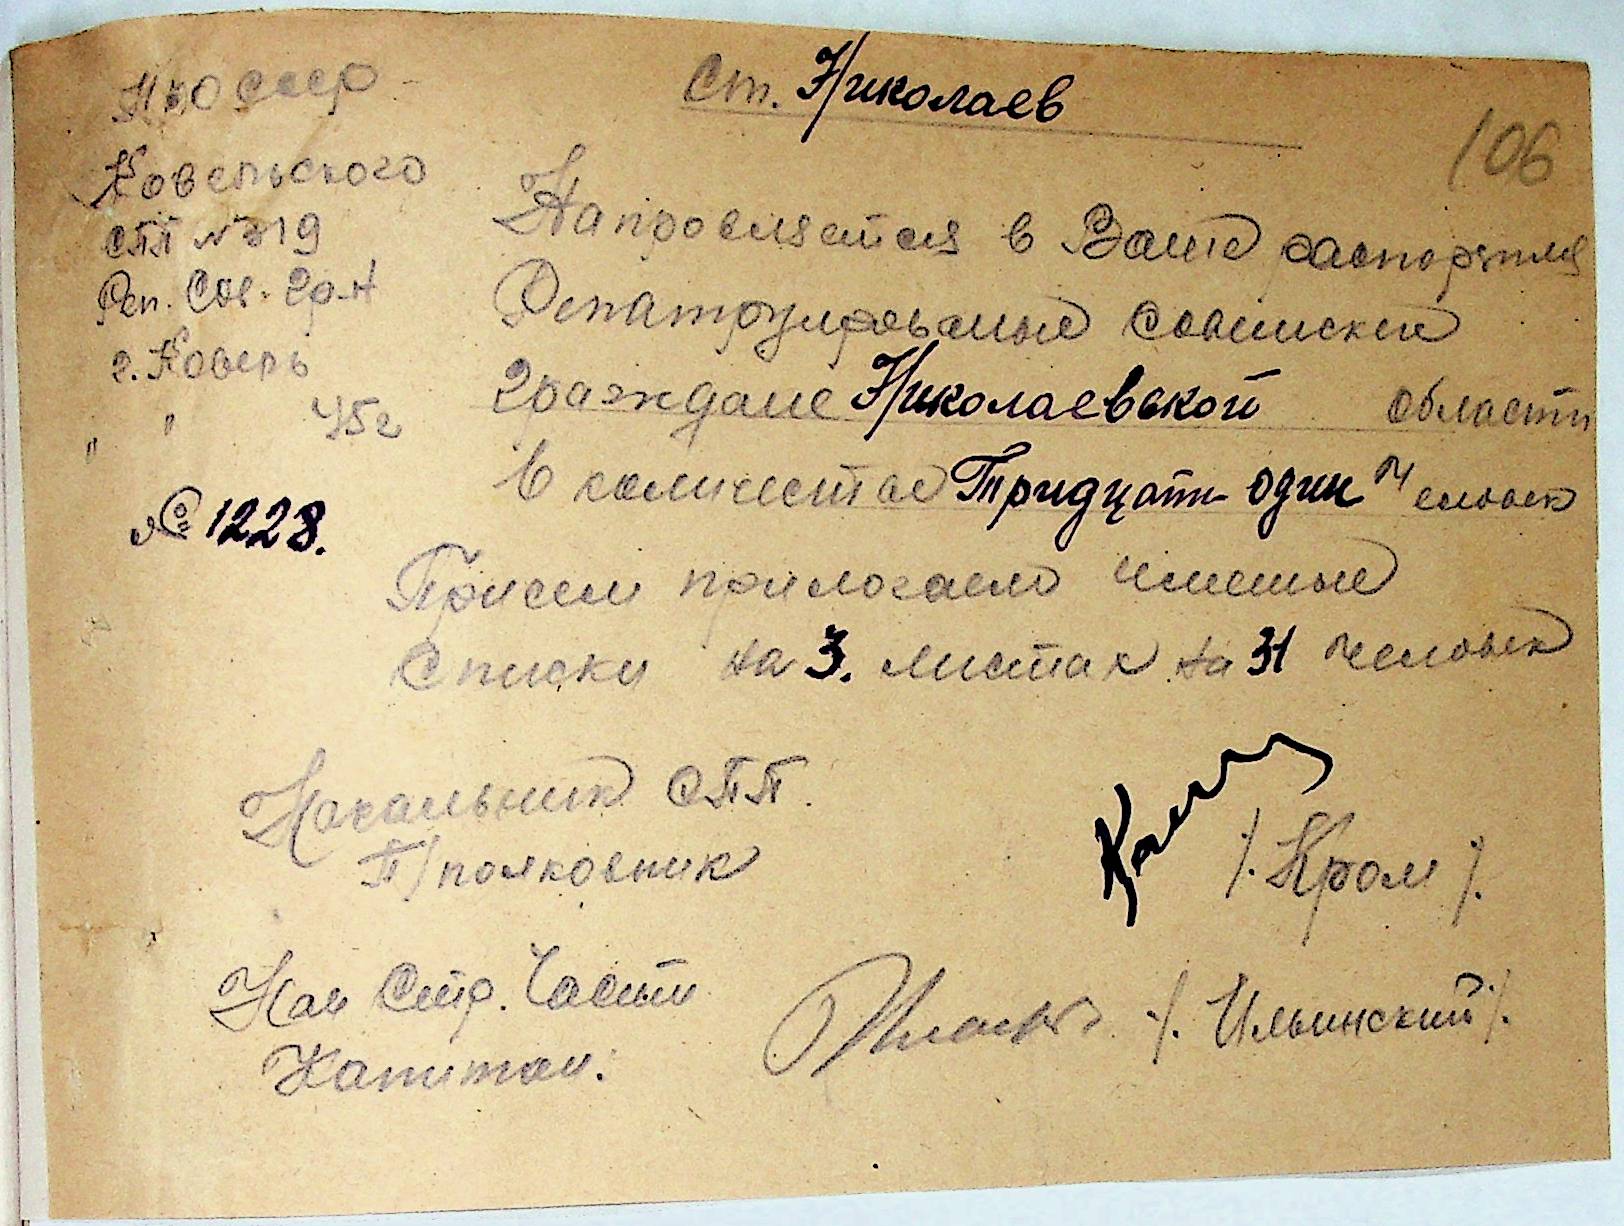 НКО СССР
Ковельского
СПП № 319
Реп. Сов. гр-н
г. Ковель
" " 45г
№ 1228.
Ст. Николаев
106
Направляется в Ваше распоряжен
Репатруированые Советские
граждане Николаевской области
в количестве Тридцати один человек
Присем прилогаем именые
Списки на 3. листах на 31 человек
Начальник СПП.
П/полковник /. Кром /.
Нач Стр. Части
Капитан: /. Ильинский /.